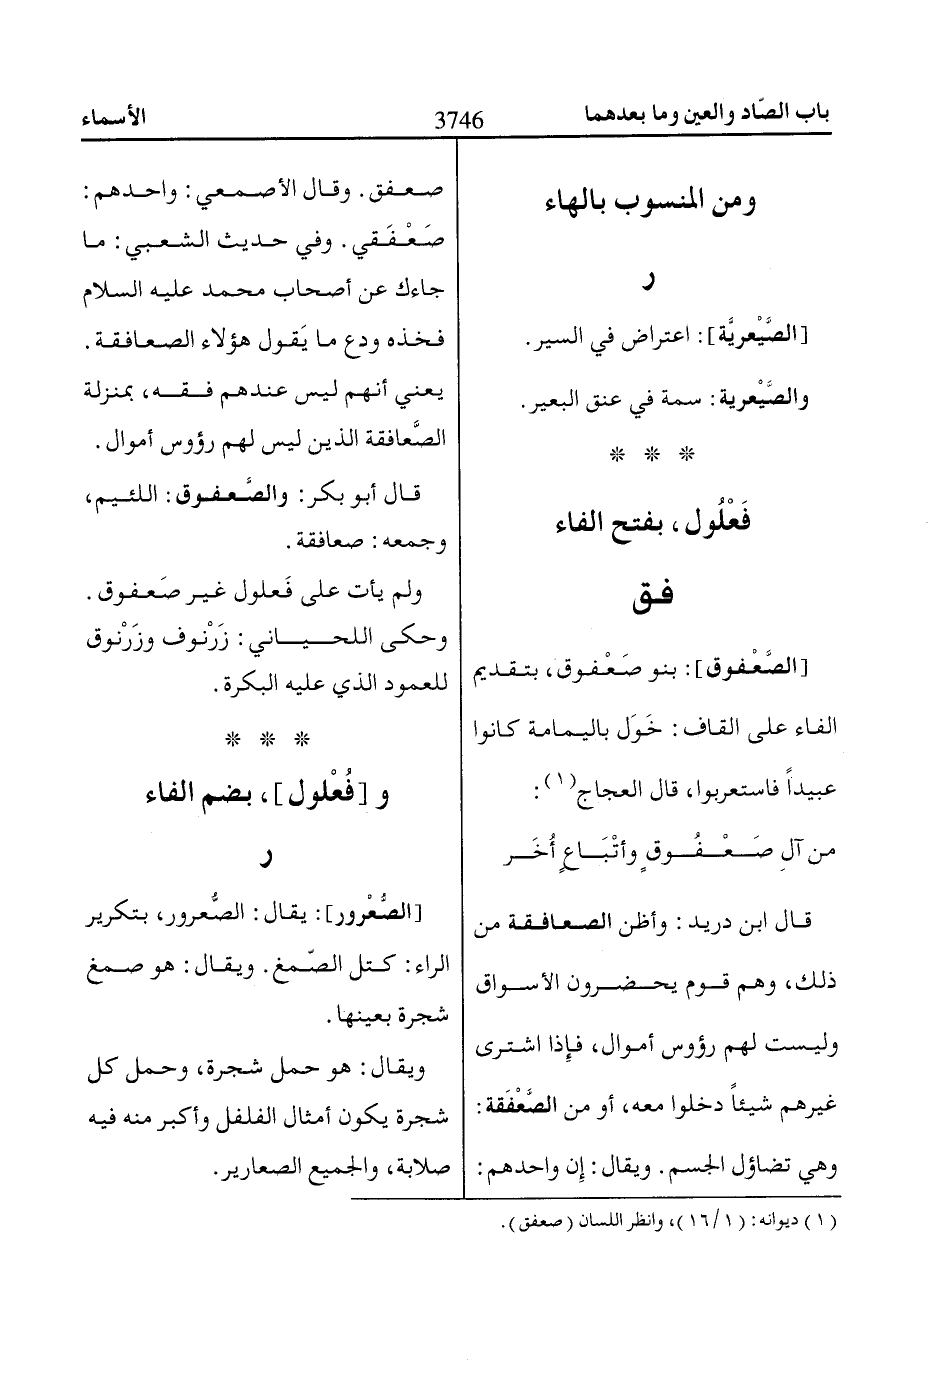 باب الصّاد والعين وما بعدهما
3746
الأسماء
ومن المنسوب بالهاء
ر
[الصَّيْعريَّة]: اعتراض في السير.
والصَّيْعرية: سمة في عنق البعير.
* * *
فَعْلُول، بفتح الفاء
فق
[الصَّعْفوق]: بنو صَعْفوق، بتقديم
الفاء على القاف: خَوَل باليمامة كانوا
عبيداً فاستعربوا، قال العجاج(١):
من آلِ صَعْفُوقٍ وأتْبَاعٍ أُخَر
قال ابن دريد: وأظن الصعافقة من
ذلك، وهم قوم يحضرون الأسواق
وليست لهم رؤوس أموال، فإذا اشترى
غيرهم شيئاً دخلوا معه، أو من الصَّعْفَقة:
وهي تضاؤل الجسم. ويقال: إن واحدهم:
صعفق. وقال الأصمعي: واحدهم:
صَعْفَقي. وفي حديث الشعبي: ما
جاءك عن أصحاب محمد عليه السلام
فخذه ودع ما يَقول هؤلاء الصعافقة.
يعني أنهم ليس عندهم فقه، بمنزلة
الصَّعافقة الذين ليس لهم رؤوس أموال.
قال أبو بكر: والصَّعفوق: اللئيم،
وجمعه: صعافقة.
ولم يأت على فَعلول غير صَعفوق.
وحكى اللحياني: زَرْنوف وزَرْنوق
للعمود الذي عليه البكرة.
* * *
و [فُعْلول]، بضم الفاء
ر
[الصُّعْرور]: يقال: الصُّعرور، بتكرير
الراء: كتل الصّمغ. ويقال: هو صمغ
شجرة بعينها.
ويقال: هو حمل شجرة، وحمل كل
شجرة يكون أمثال الفلفل وأكبر منه فيه
صلابة، والجميع الصعارير.
(١) ديوانه: (١٦/١)، وانظر اللسان (صعفق).